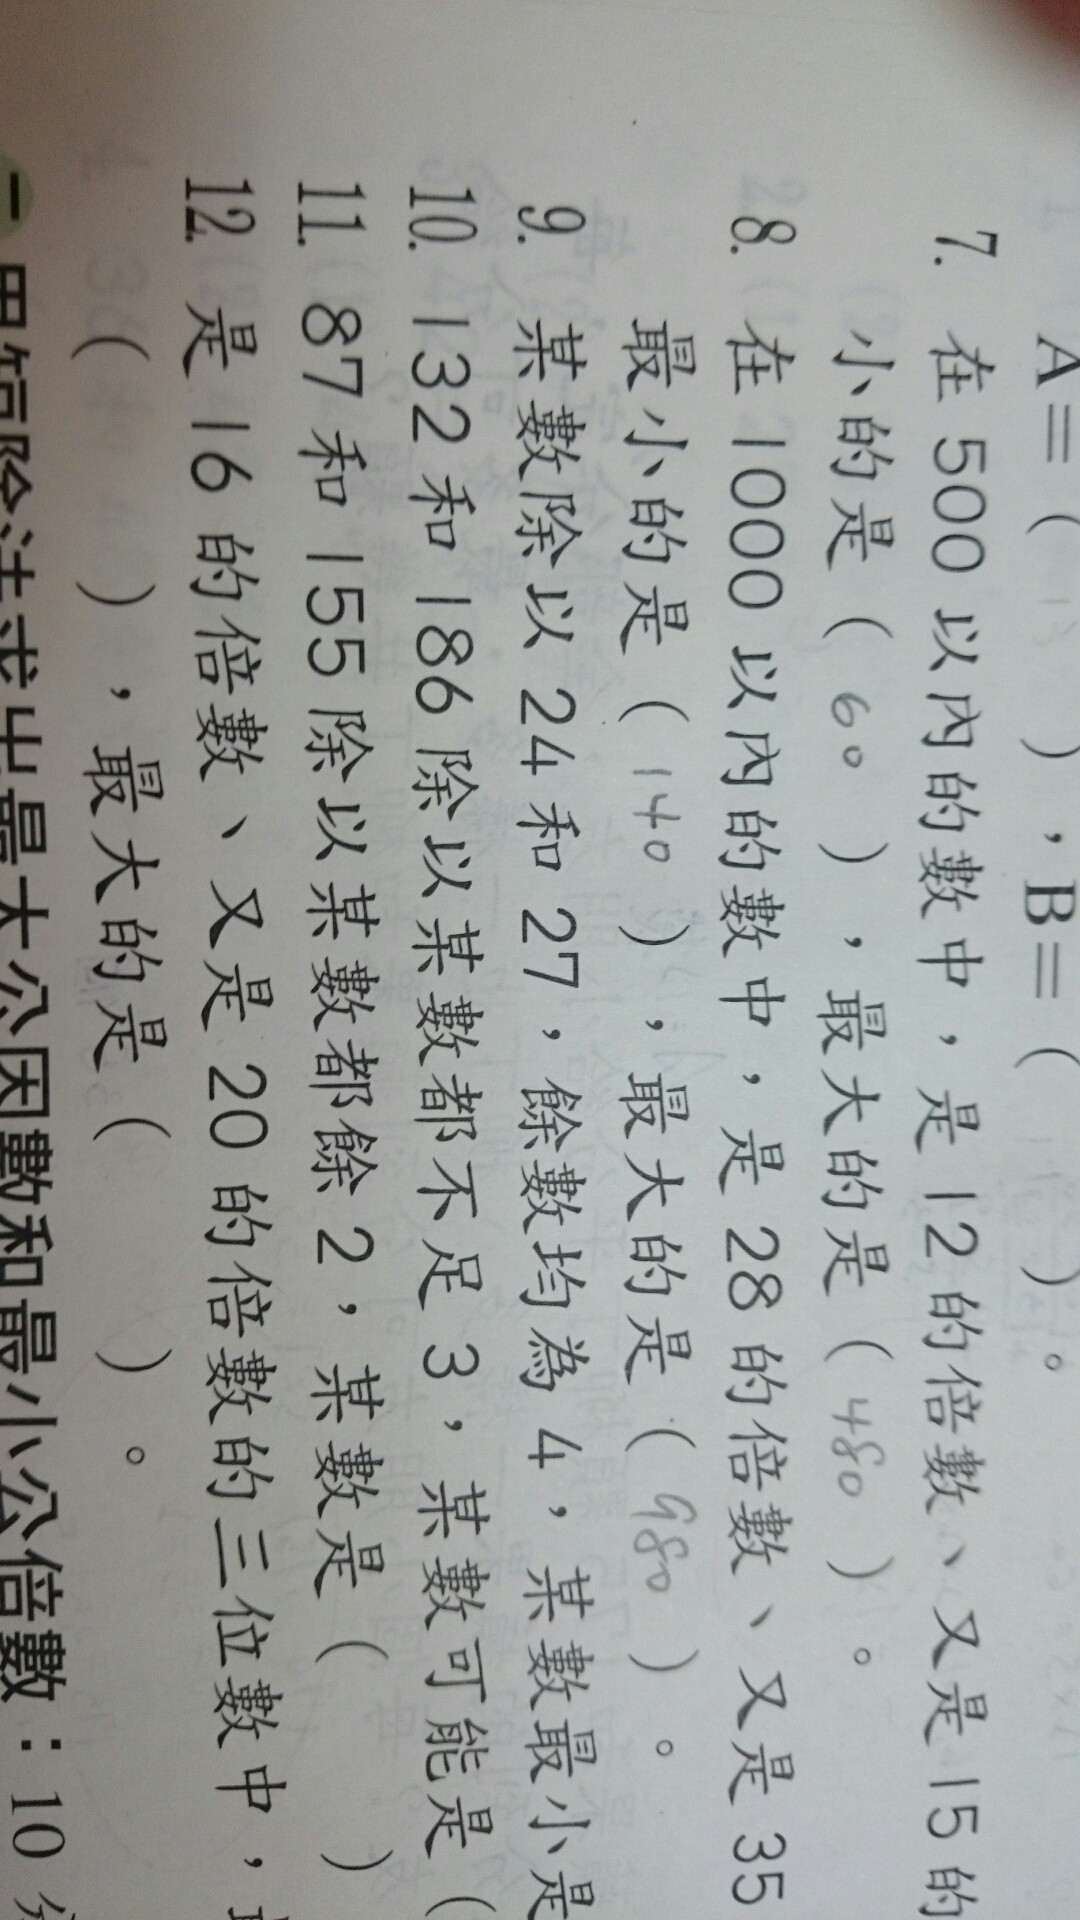 A＝（ ），B＝（ ）。
7. 在 500 以內的數中，是 12 的倍數、又是 15 的
小的是（ 60 ），最大的是（ 480 ）。
8. 在 1000 以內的數中，是 28 的倍數、又是 35
最小的是（ 140 ），最大的是（ 980 ）。
9. 某數除以 24 和 27，餘數均為 4，某數最小是
10. 132 和 186 除以某數都不足 3，某數可能是（
11. 87 和 155 除以某數都餘 2，某數是（ ）
12. 是 16 的倍數、又是 20 的倍數的三位數中，
（ ），最大的是（ ）。
一 用短除法求出最大公因數和最小公倍數：10 分